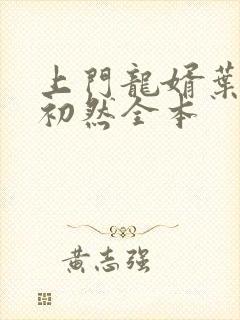 上門龍婿葉
初然全本
黃志强